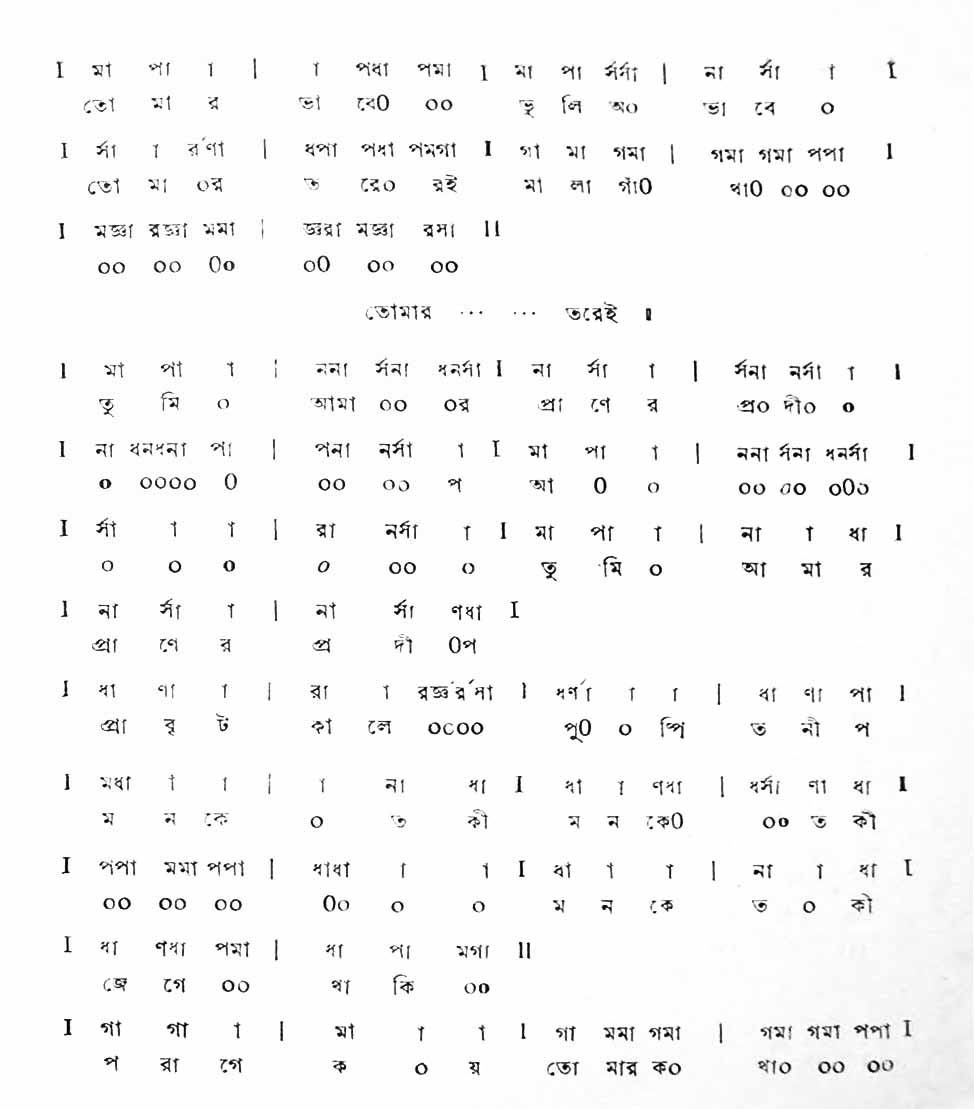 I মা পা া | া পধা পমা I মা পা র্সর্সা | না র্সা া I
তো মা র ভা বে০ ০০ ভু লি অ০ ভা বে ০
I র্সা া র্র্ণা | ধপা পধা পমগা I গা মা গমা | গমা গমা পপা I
তো মা ০র ত রে০ রই মা লা গাঁ০ থা০ ০০ ০০
I মজ্ঞা রজ্ঞা মমা | জ্ঞরা মজ্ঞা রসা II
০০ ০০ ০০ ০০ ০০ ০০
তোমার ... ... তরেই ॥
I মা পা া | ননা র্সনা ধনর্সা I না র্সা া | র্সনা নর্সা া I
তু মি ০ আমা ০০ ০র প্রা ণে র প্র০ দী০ ০
I না ধনধনা পা | পনা নর্সা া I মা পা া | ননা র্সনা ধনর্সা I
০ ০০০০ ০ ০০ ০০ প আ ০ ০ ০০ ০০ ০০০
I র্সা া া | রা নর্সা া I মা পা া | না া ধা I
০ ০ ০ ০ ০০ ০ তু মি ০ আ মা র
I না র্সা া | না র্সা ণধা I
প্রা ণে র প্র দী ০প
I ধা ণা া | রা া রজ্ঞর্র্সা I ধর্ণা া া | ধা ণা পা I
প্রা বৃ ট কা লে ০০০০ পু০ ০ ষ্পি ত নী প
I মধা া া | া না ধা I ধা া ণধা | ধর্সা ণা ধা I
ম ন কে ০ ত কী ম ন কে০ ০০ ত কী
I পপা মমা পপা | ধাধা া া I ধা া া | না া ধা I
০০ ০০ ০০ ০০ ০ ০ ম ন কে ত ০ কী
I ধা ণধা পমা | ধা পা মগা II
জে গে ০০ থা কি ০০
I গা গা া | মা া া I গা মমা গমা | গমা গমা পপা I
প রা গে ক ০ য় তো মার ক০ থা০ ০০ ০০